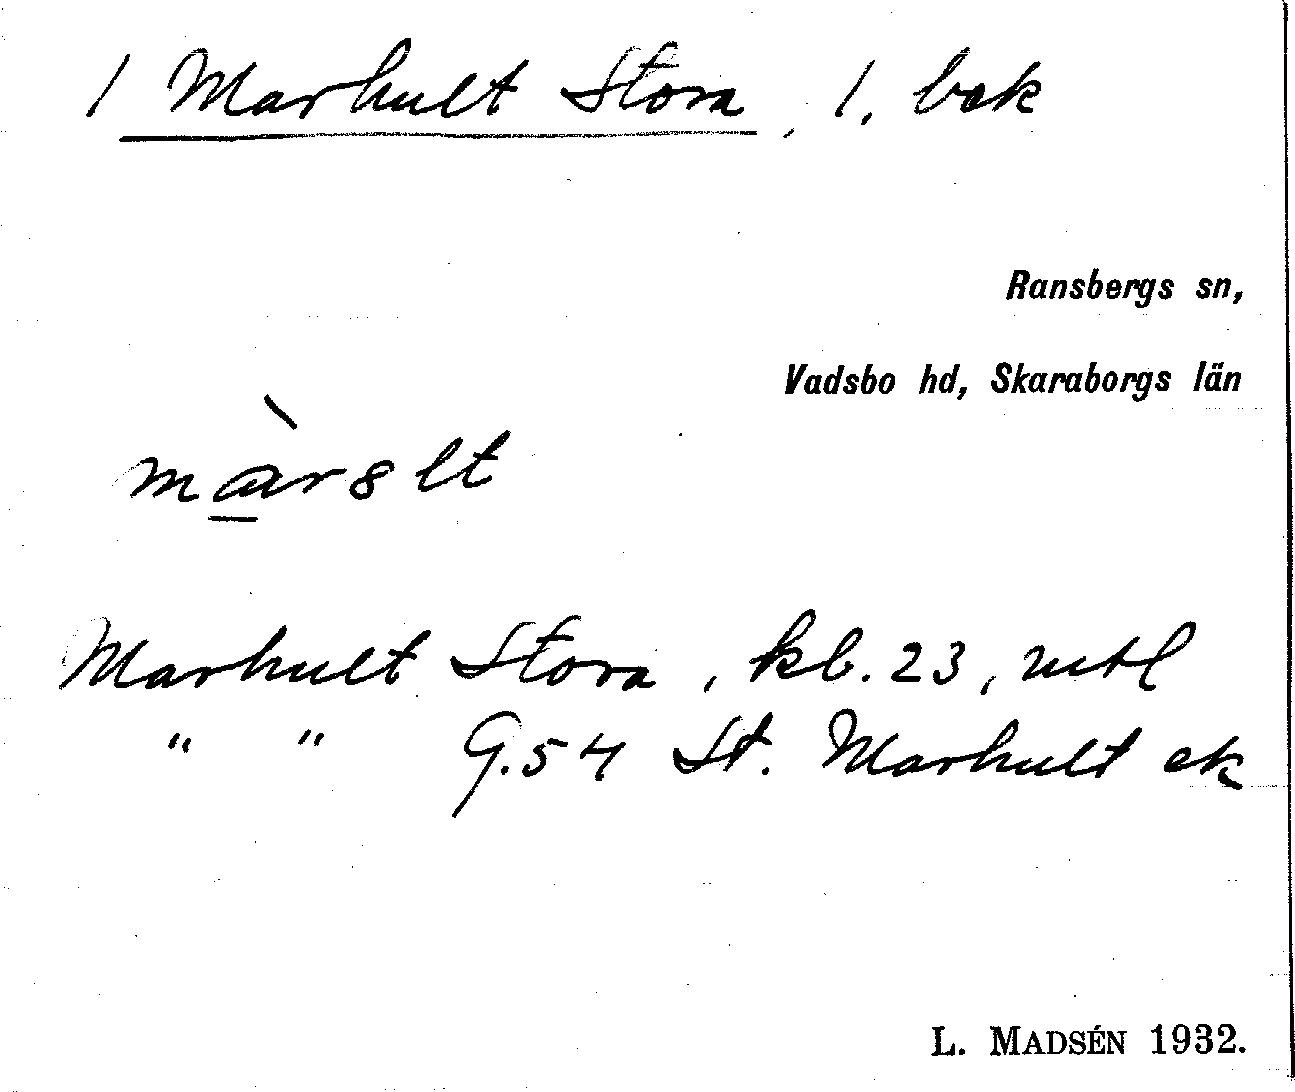 1 Marhult Stora, 1. bek
Ransbergs sn,
Vadsbo hd, Skaraborgs län
Marhult Stora, kb. 23, mtl
" " G.54 St. Marhult ek
L. MADSÉN 1932.